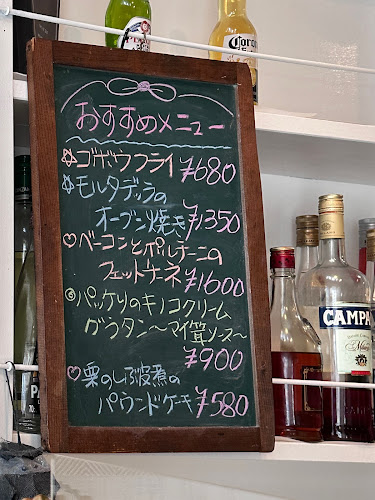 おすすめメニュー
☆ゴボウフライ ¥680
☆モルタデッラの
オーブン焼き ¥1350
♡ベーコンとポルチーニの
フェットチーネ ¥1600
パッケリのキノコクリーム
グラタン〜マイ茸ソース〜
¥900
♡栗のしぶ皮煮の
パウンドケーキ ¥580
Corona
CAMPA
Milano